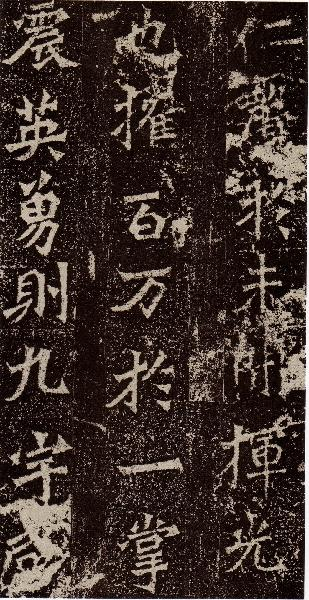 仁於未揮光
也擢百万於一掌
震英勇則九宇咸